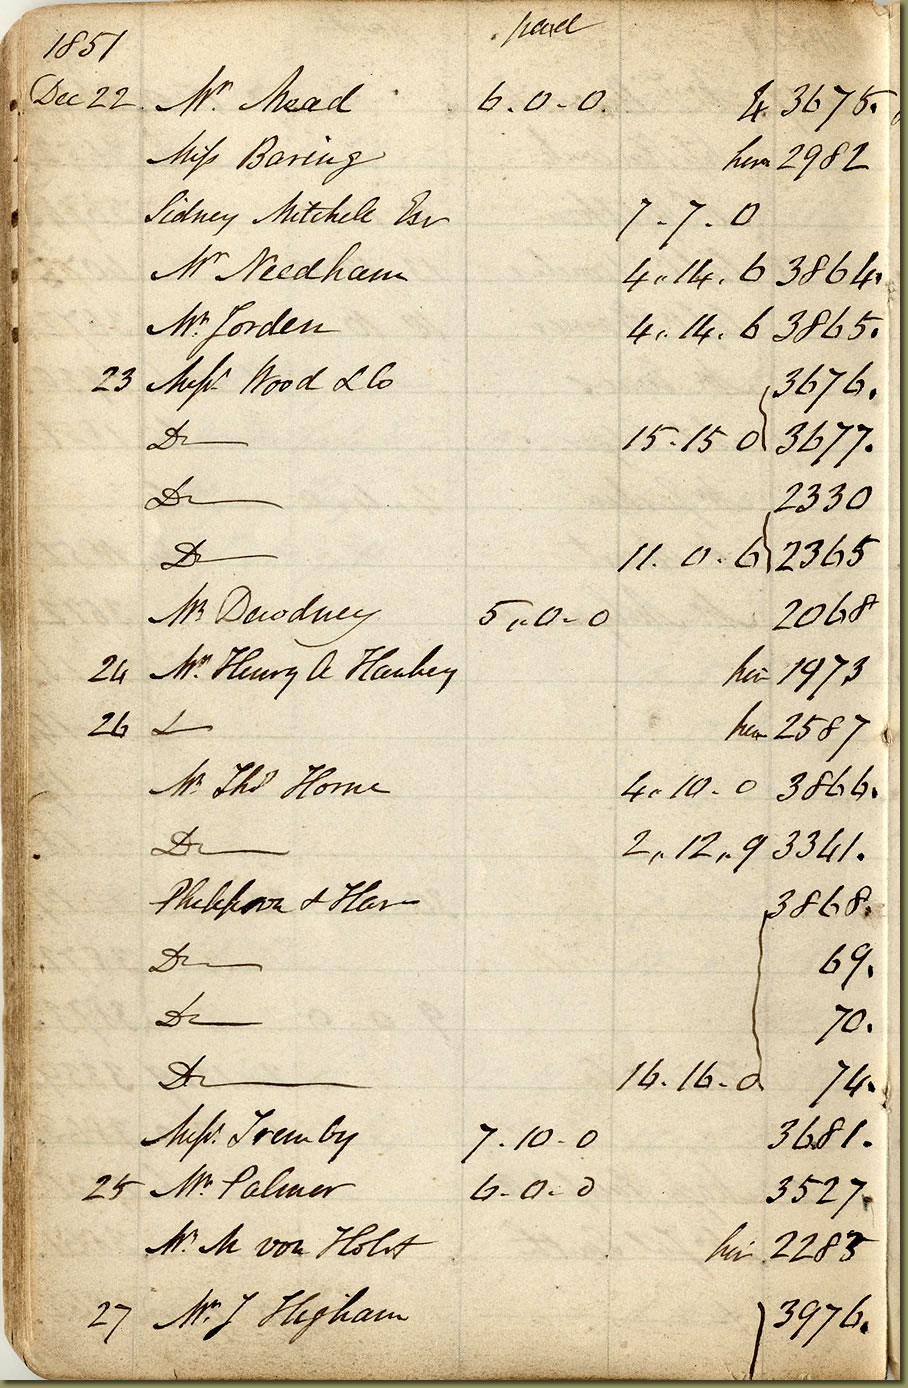 1851 paid
Dec 22 Mr. Mead 6.0-0. 4 3675.
Miss Baring hire 2982
Sidney Mitchell Esr 7-7.0
Mr Needham 4.14.6 3864.
Mr. Jorden 4.14.6 3865.
23 Messrs Wood & Co 3676.
Do 15-15 0 3677.
Do 2330
Do 11.0.6 2365
Mr 5,,0-0 2068
24 Mr. Henry hire 1973
26 hire 2587
Mr. Thos Horne 4.10.0 3866.
Do 2,,12,,9 3341.
& 3868.
Do 69.
Do 70.
Do 16.16.0 74.
Messrs. 7.10-0 3681.
25 Mr. Palmer 6-0-0 3527.
Mr. M von Holst hire 2283
27 Mr. J Higham 3976.